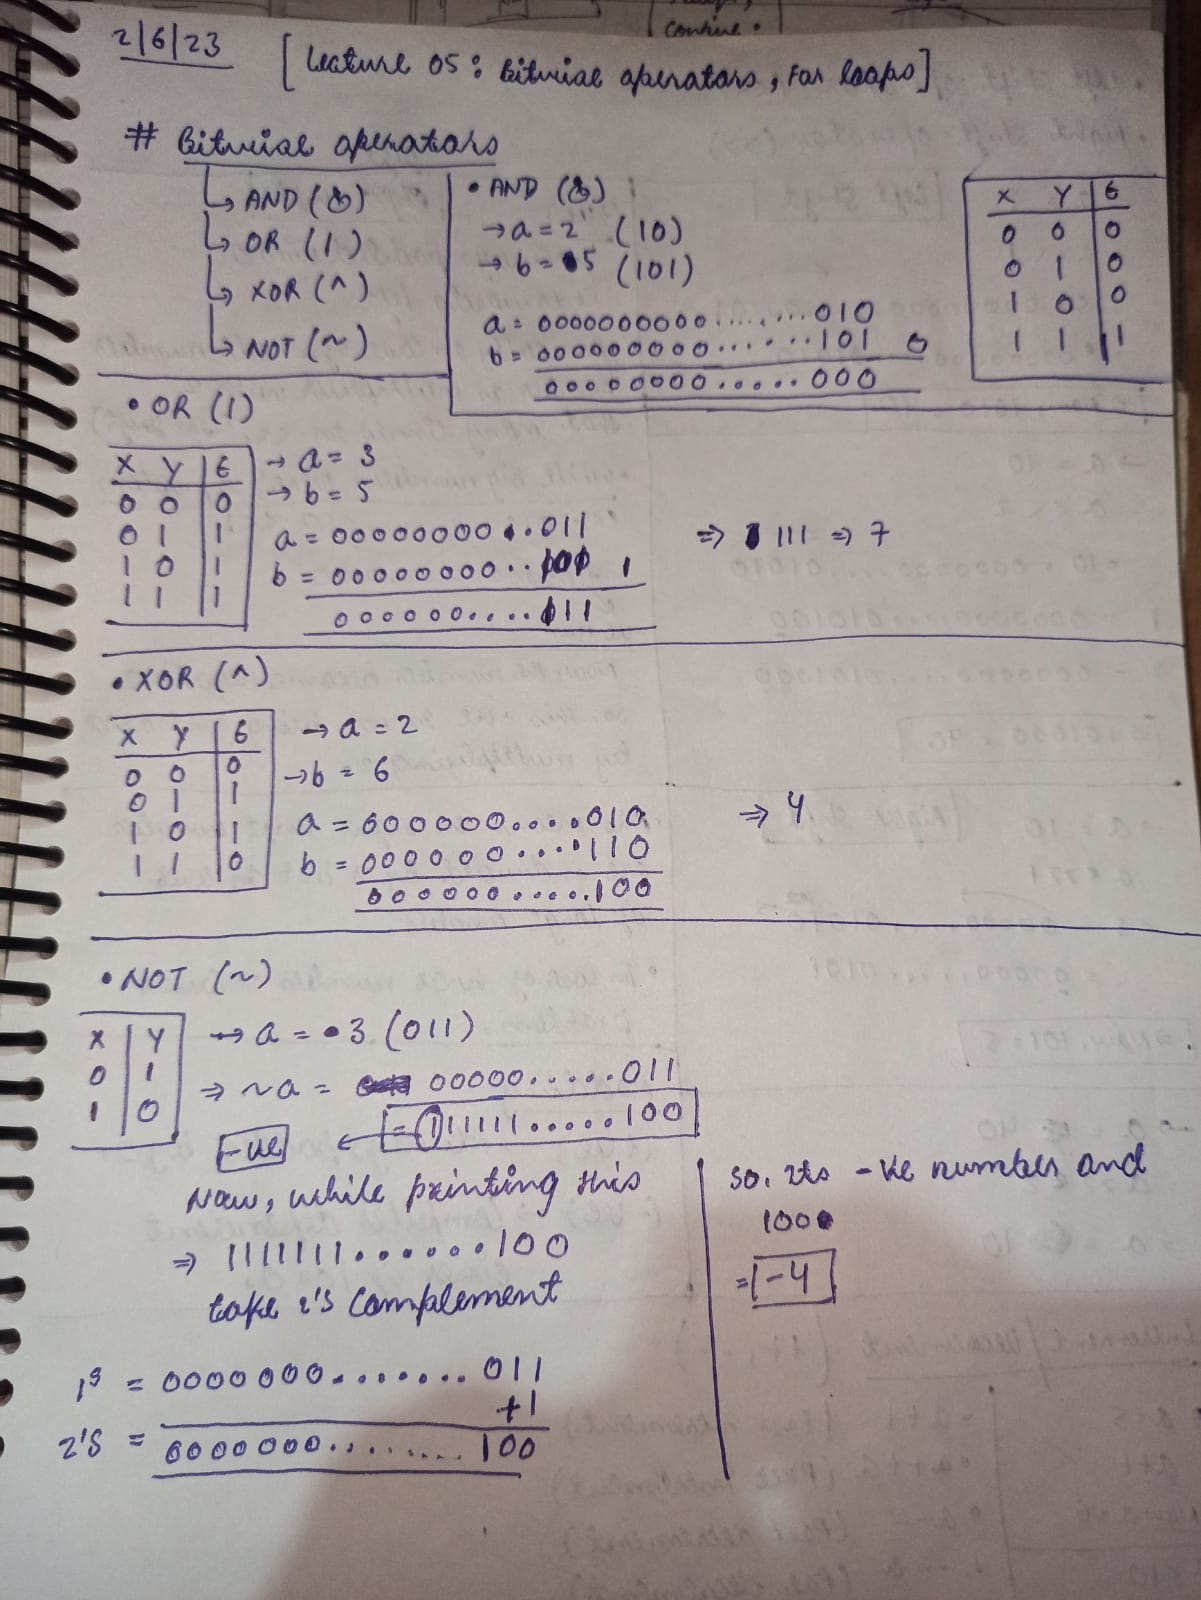 2/6/23 [Lecture 05: Bitwise operators, For loops]
# Bitwise operators
↳ AND (&)
↳ OR (|)
↳ XOR (^)
↳ NOT (~)
• AND (&)
→ a = 2 (10)
→ b = 5 (101)
a = 0000000000.......010
b = 000000000......101 0
00000000.....000
X Y 6
0 0 0
0 1 0
1 0 0
1 1 1
• OR (|)
X Y 6
0 0 0
0 1 1
1 0 1
1 1 1
→ a = 3
→ b = 5
a = 00000000..011
b = 00000000..101 1
000000....111
⇒ 111 ⇒ 7
• XOR (^)
X Y 6
0 0 0
0 1 1
1 0 1
1 1 0
→ a = 2
→ b = 6
a = 000000....010
b = 000000....110
000000.....100
⇒ 4
• NOT (~)
X Y
0 1
1 0
→ a = 3 (011)
⇒ ~a = 00000.....011
= 111111.....100
-ve ←
Now, while printing this
⇒ 1111111......100
take 2's complement
1s = 0000000.......011
+1
2's = 0000000........100
So. Its -ve number and
100
= -4